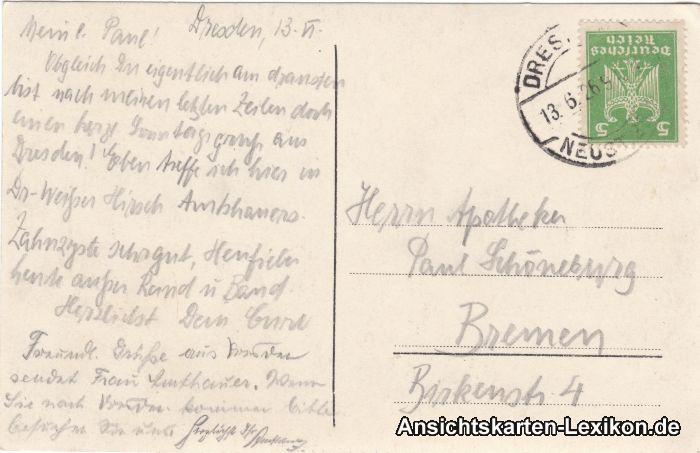 Mein l. Paul! Dresden, 13. VI.
Obgleich Du eigentlich am dransten
bist nach meinen letzten Zeilen doch
einen herzl. Sonntagsgruß aus
Dresden! Eben treffe ich hier in
Dr-Weißer Hirsch Amthauers.
sehr gut,
heute außer Rand u Band.
Herzlichst Dein Curt
Freundl. Grüße aus Dresden
sendet Frau Amthauer. Wenn
Sie nach Dresden kommen bitte
besuchen Sie uns
Herrn Apotheker
Paul Schöneburg
Bremen
Birkenstr. 4
DRES
13.6.26
NEUST
Deutsches
Reich
5 5
Ansichtskarten-Lexikon.de